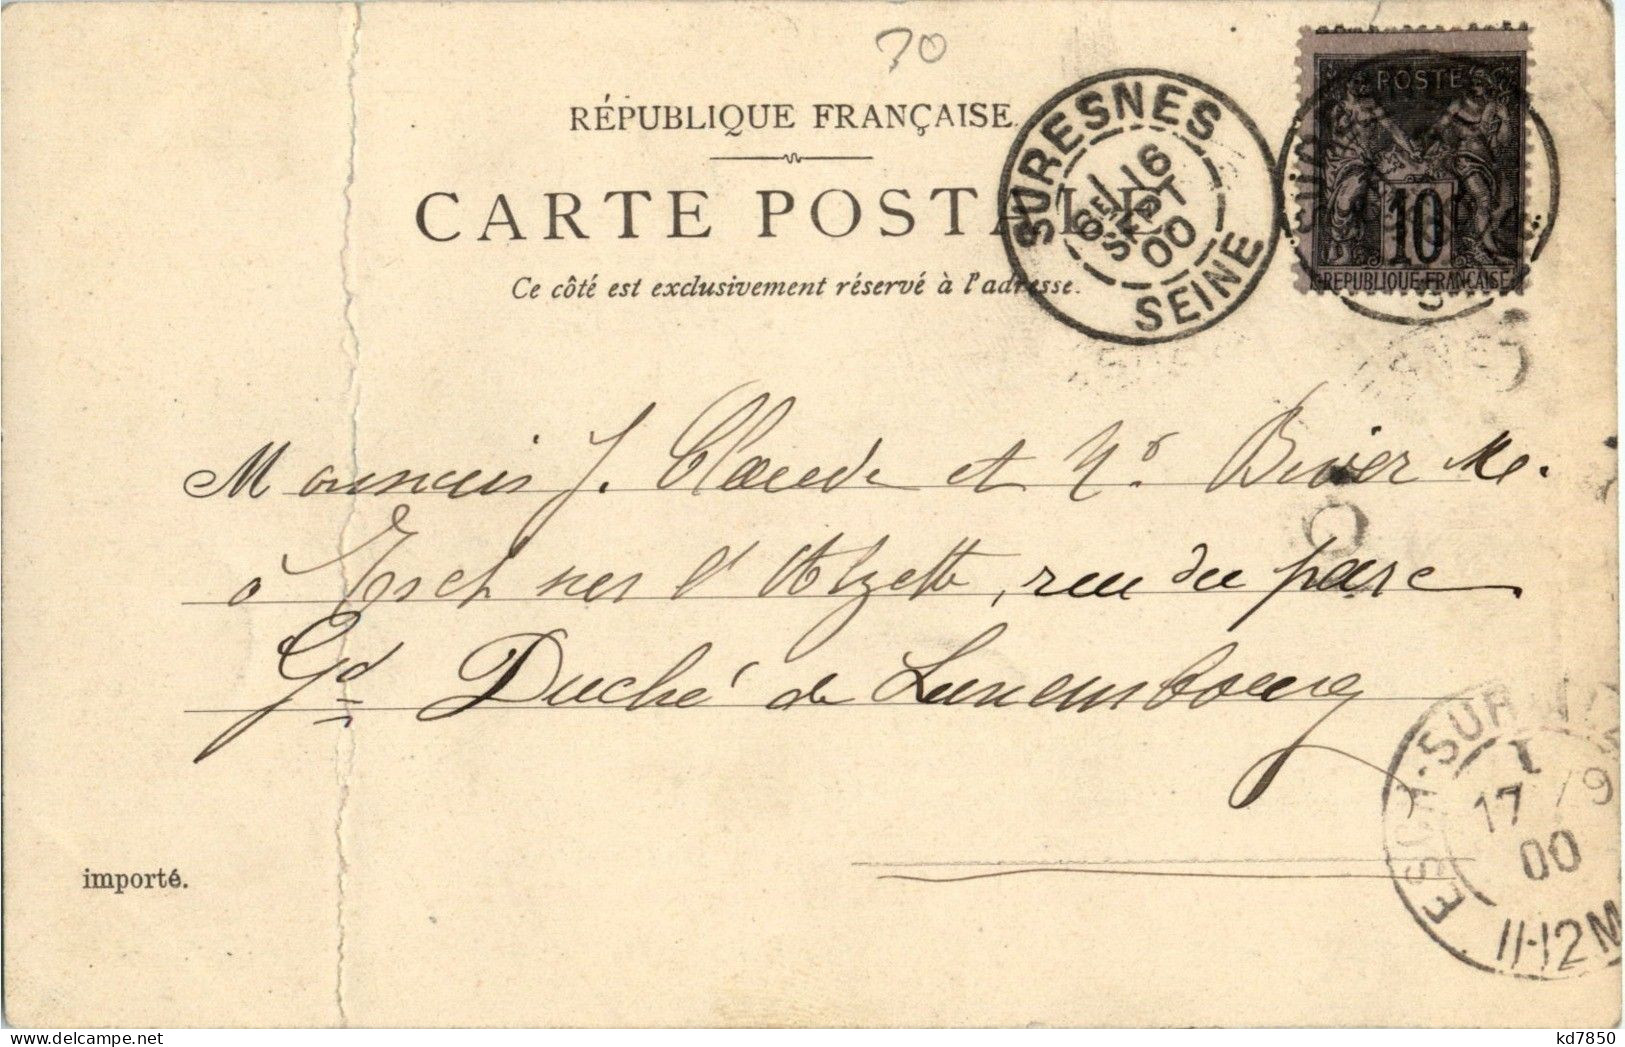 70
RÉPUBLIQUE FRANÇAISE
CARTE POSTALE
Ce côté est exclusivement réservé à l'adresse.
SURESNES
16
SEPT
00
SEINE
POSTE
10
REPUBLIQUE FRANÇAISE
J. Claude et Biver
à Esch sur l'Alzette, rue du parc
Gd Duché de Luxembourg
importé.
ESCH-SUR
17/9
00
11-12M
kd7850